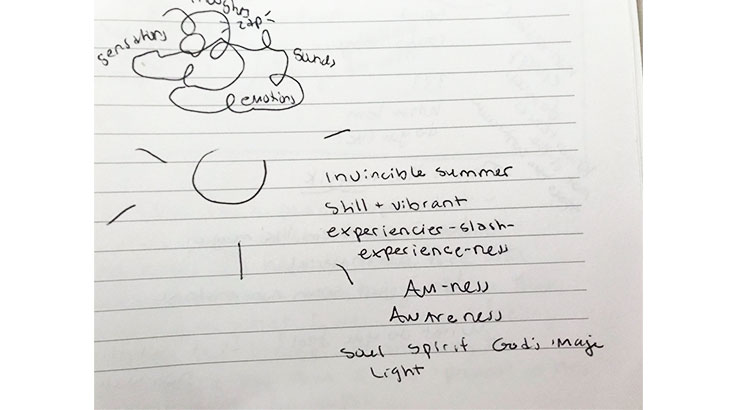 thoughts
zap
sensations
sounds
emotions
Invincible summer
Still + vibrant
experiencier-slash-
experience-ness
Am-ness
Awareness
Soul Spirit God's image
Light